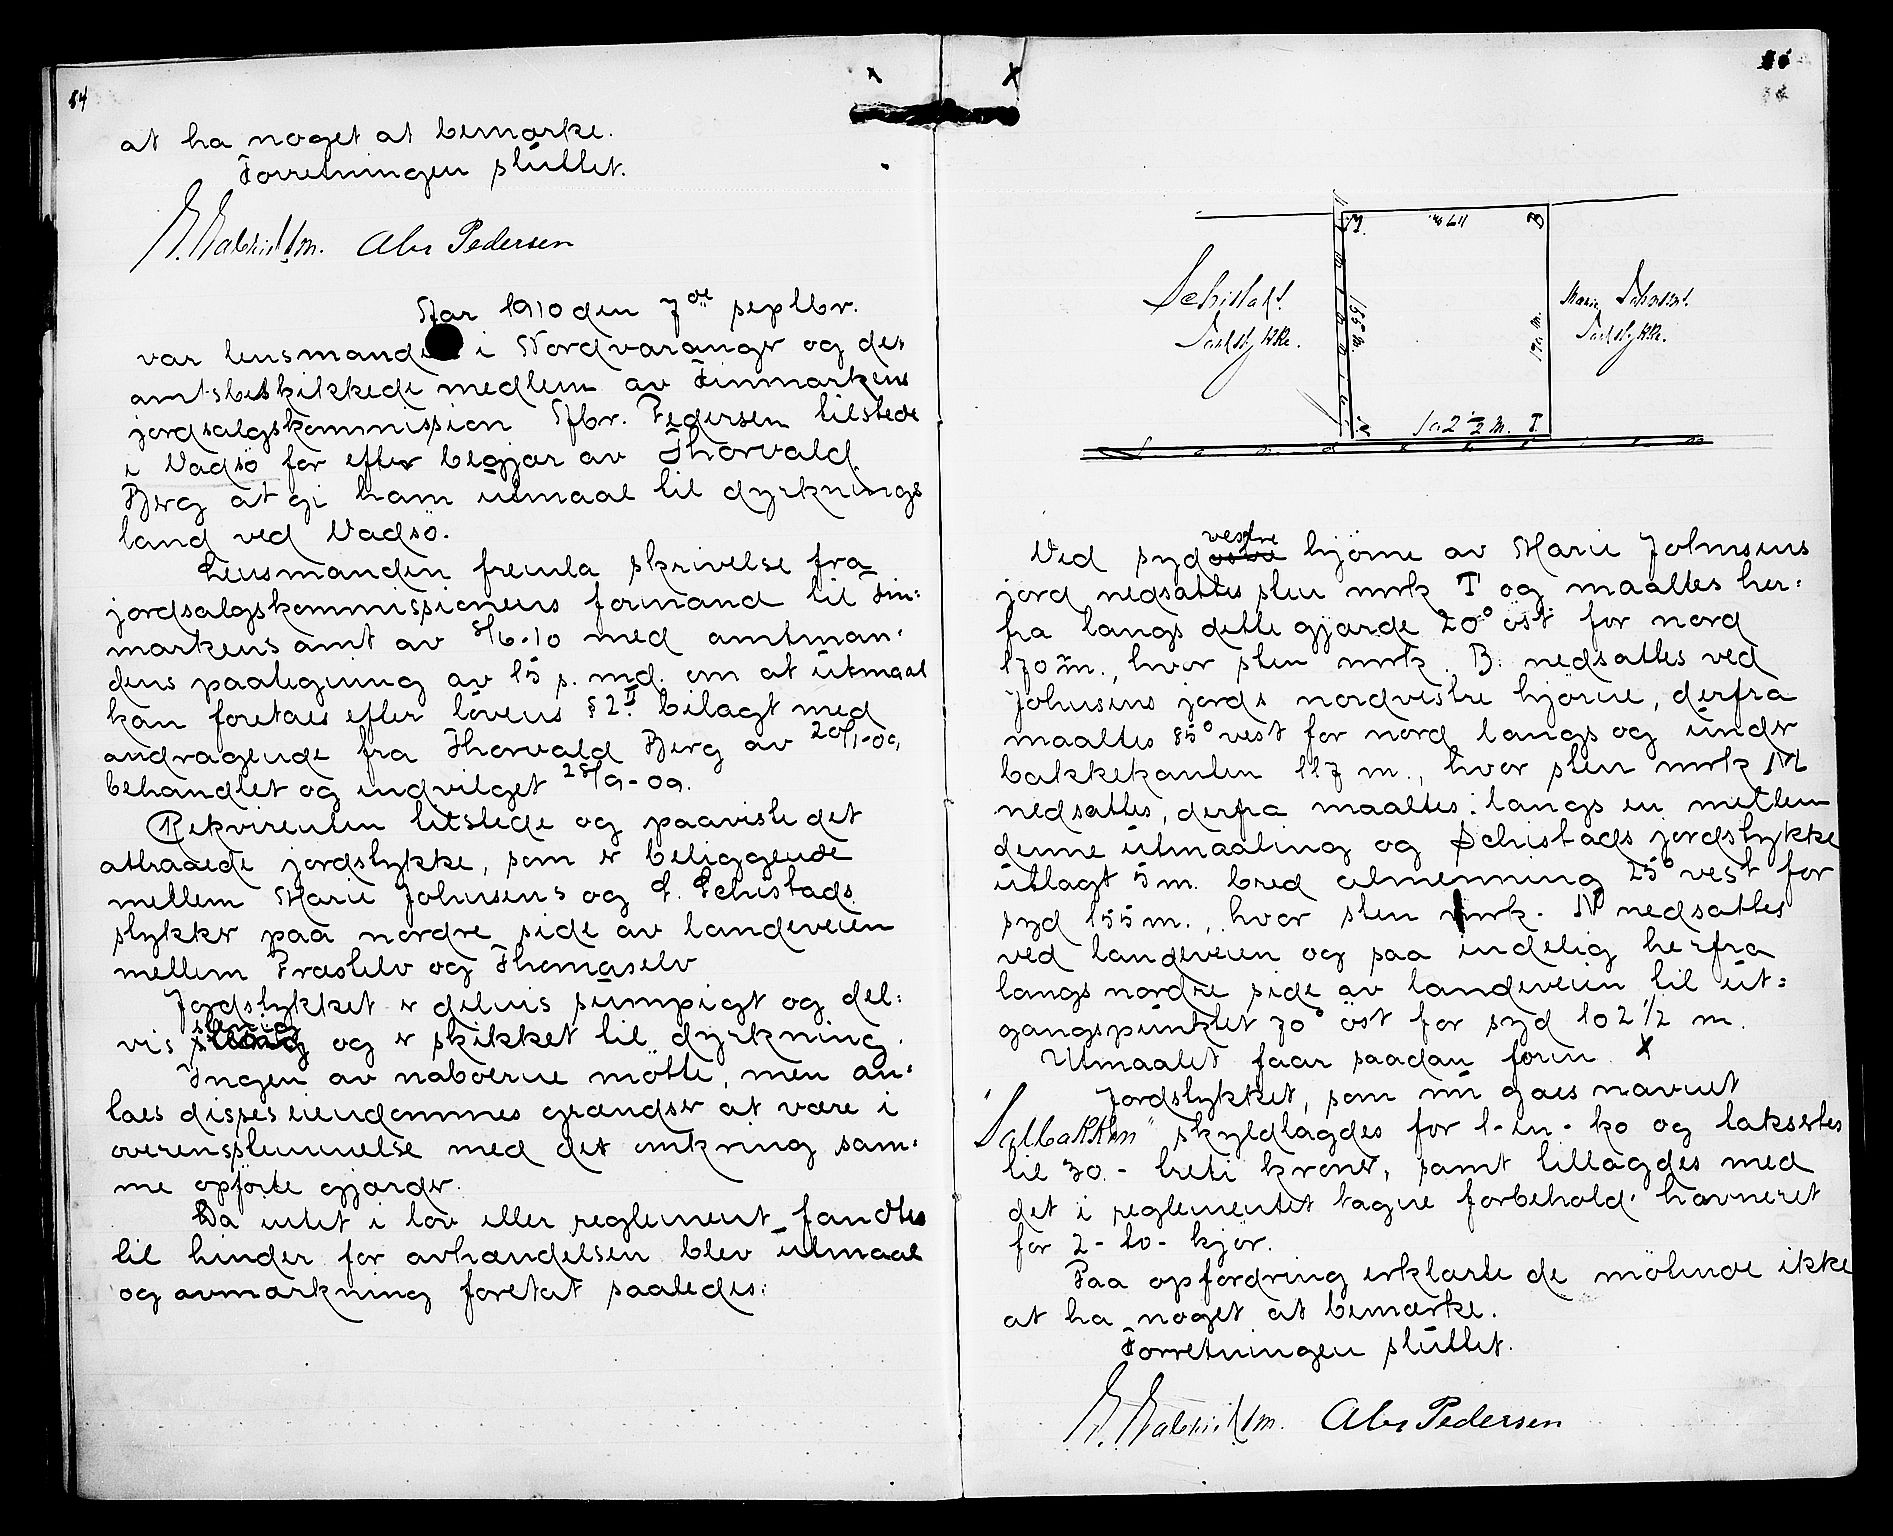 84
at ha noget at bemærke.
Forretningen sluttet.
Abr Pedersen
Aar 1910 den 7de septbr.
var lensmanden i Nordvaranger og det
amtsbeskikkede medlem av Finmarkens
jordsalgskommission Abr. Pedersen tilstede
i Vadsö for efter begjær av Thorvald
Berg at gi ham utmaal til dyrknings
land ved Vadsö.
Lensmanden fremla skrivelse fra
jordsalgskommissionens formand til Fin-
markens amt av 8/6-10 med amtman-
dens paategning av 15 s. md. om at utmaal
kan foretaes efter lovens § 2 bilagt med
andragende fra Thorvald Berg av 20/1-09,
behandlet og indvilget 28/9-09.
Rekvirenten tilstede og paaviste det
attraaede jordstykke, som er beliggende
mellem Marie Johnsens og L. Schistads
stykker paa nordre side av landeveien
mellem Præstelv og Thomaselv
Jordstykket er delvis sumpigt og del-
vis stenig og er skikket til dyrkning.
Ingen av naboerne mötte, men an-
taes disses eiendommes grændser at være i
overensstemmelse med det omkring sam-
me opförte gjærder.
Da intet i lov eller reglement fandtes
til hinder for avhændelsen blev utmaal
og avmærkning foretat saaledes:
M 117 m. B
Schistad
Jordstykke.
155 m.
170 m.
Marie Johnsens
Jordstykke.
N 102 1/2 m. T
L a n d e v e i e n
Ved sydvestre hjörne av Marie Johnsens
jord nedsattes sten mrk T og maaltes her-
fra langs dette gjærde 20° öst for nord
170 m., hvor sten mrk. B. nedsattes ved
Johnsens jords nordvestre hjörne, derfra
maaltes 85° vest for nord langs og under
bakkekanten 117 m., hvor sten mrk M
nedsattes, derfra maaltes langs en mellem
denne utmaaling og Schistads jordstykke
utlagt 5 m. bred almenning 25° vest for
syd 155 m., hvor sten mrk. N nedsattes
ved landeveien og paa endelig herfra
langs nordre side av landeveien til ut-
gangspunktet 70° öst for syd 102 1/2 m.
Utmaalet faar saadan form X
Jordstykket, som nu gaes navnet
"Solbakken" skyldlagdes for 1-en-ko og taksertes
til 30.- treti kroner, samt tillagdes med
det i reglementet tagne forbehold havneret
for 2-to-kjör.
Paa opfordring erklærte de mötende ikke
at ha noget at bemærke.
Forretningen sluttet.
Abr Pedersen